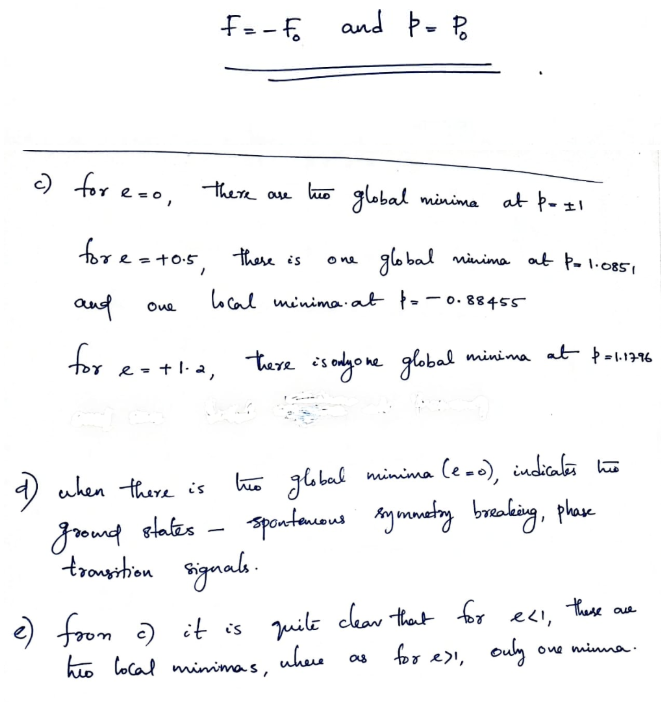 F = - F₀ and p = P₀
c) for e = 0, there are two global minima at p = ±1
for e = +0.5, there is one global minima at p = 1.0851
and one local minima at p = - 0.88455
for e = +1.2, there is only one global minima at p = 1.1796
d) when there is two global minima (e = 0), indicates two
ground states - spontenious symmetry breaking, phase
transition signals.
e) from c) it is quite clear that for e<1, these are
two local minimas, where as for e>1, only one minma.